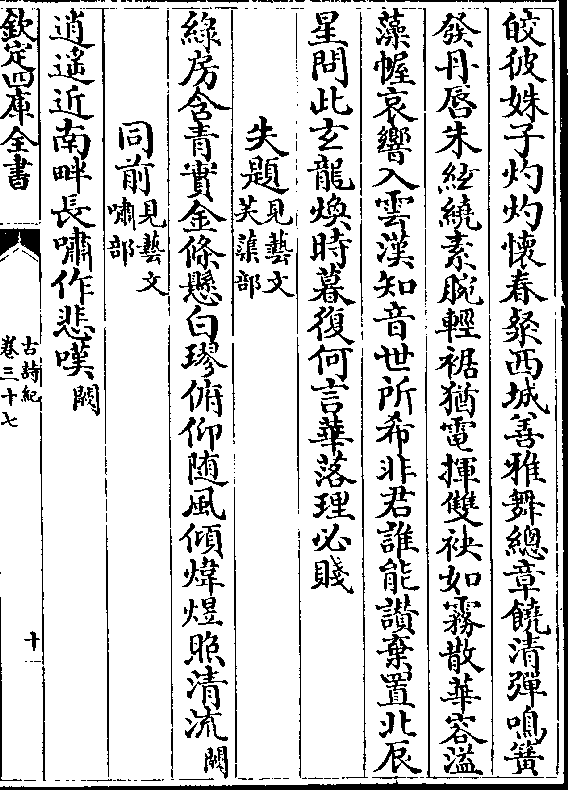 皎彼姝子灼灼懷春粲西城善雅舞總章饒清彈鳴簧
發丹唇朱絃繞素腕輕裾猶電揮雙袂如霧散華容溢
藻幄哀響入雲漢知音世所希非君誰能讚棄置北辰
星問此玄龍煥時暮復何言華落理必賤
失題見藝文芙蕖部
綠房含青實金條懸白璆俯仰随風傾煒煜照清流闕
同前見藝文嘯部
逍遙近南畔長嘯作悲嘆闕
欽定四庫全書
古詩紀
卷三十七
十一